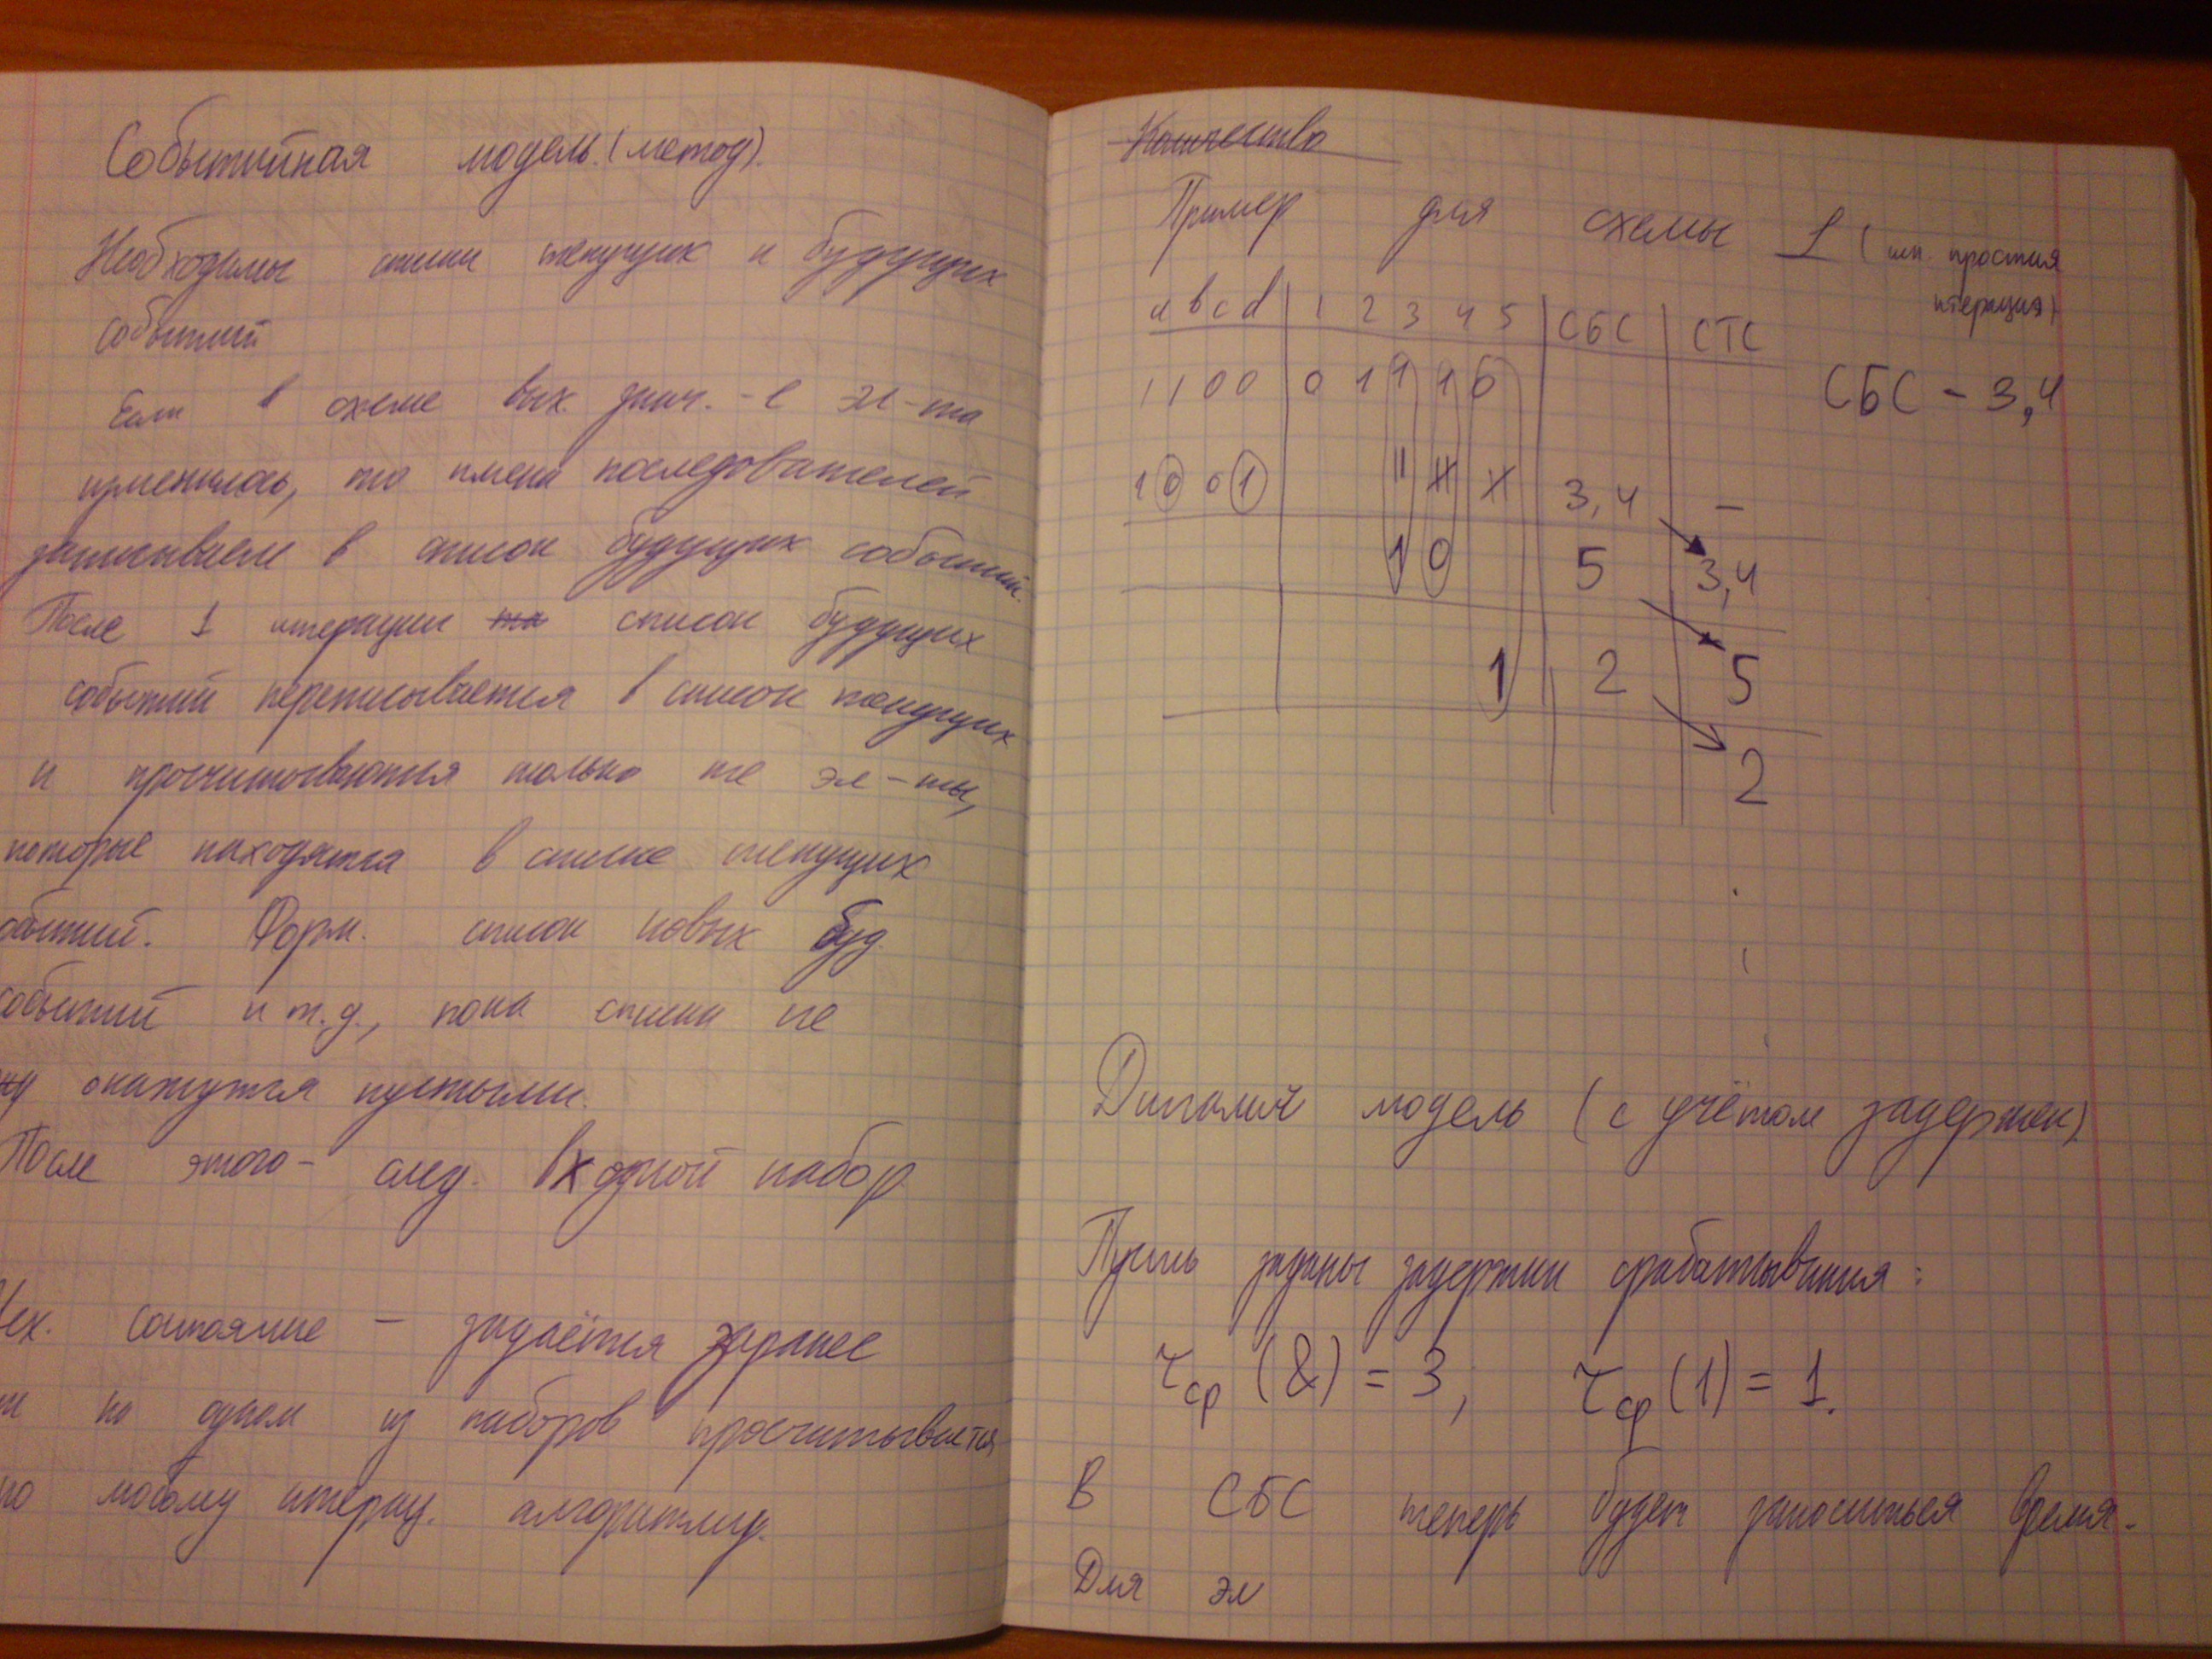 Событийная модель (метод).
Необходимы списки текущих и будущих
событий
Если в схеме вых. знач.-е эл-та
изменилось, то имена последователей
записываем в список будущих событий.
После 1 итерации список будущих
событий переписывается в список текущих
и просчитываются только те эл-ты,
которые находятся в списке текущих
обытий. Форм. список новых буд.
событий и т.д., пока списки не
окажутся пустыми.
После этого - след. входной набор
Исх. состояние - задаётся заранее
на одном из наборов просчитывается
по любому итерац. алгоритму.
Количество
Пример для схемы 1 (см. простая
итерация)
a b c d 1 2 3 4 5 СБС СТС
1 1 0 0 0 1 1 1 0
СБС - 3,4
1 0 0 1 3,4 -
1 0 5 3,4
1 2 5
2
Динамич модель (с учётом задержек)
Пусть заданы задержки срабатывания:
τср (&) = 3, τср (1) = 1.
В СБС теперь будет заноситься время.
Для эл